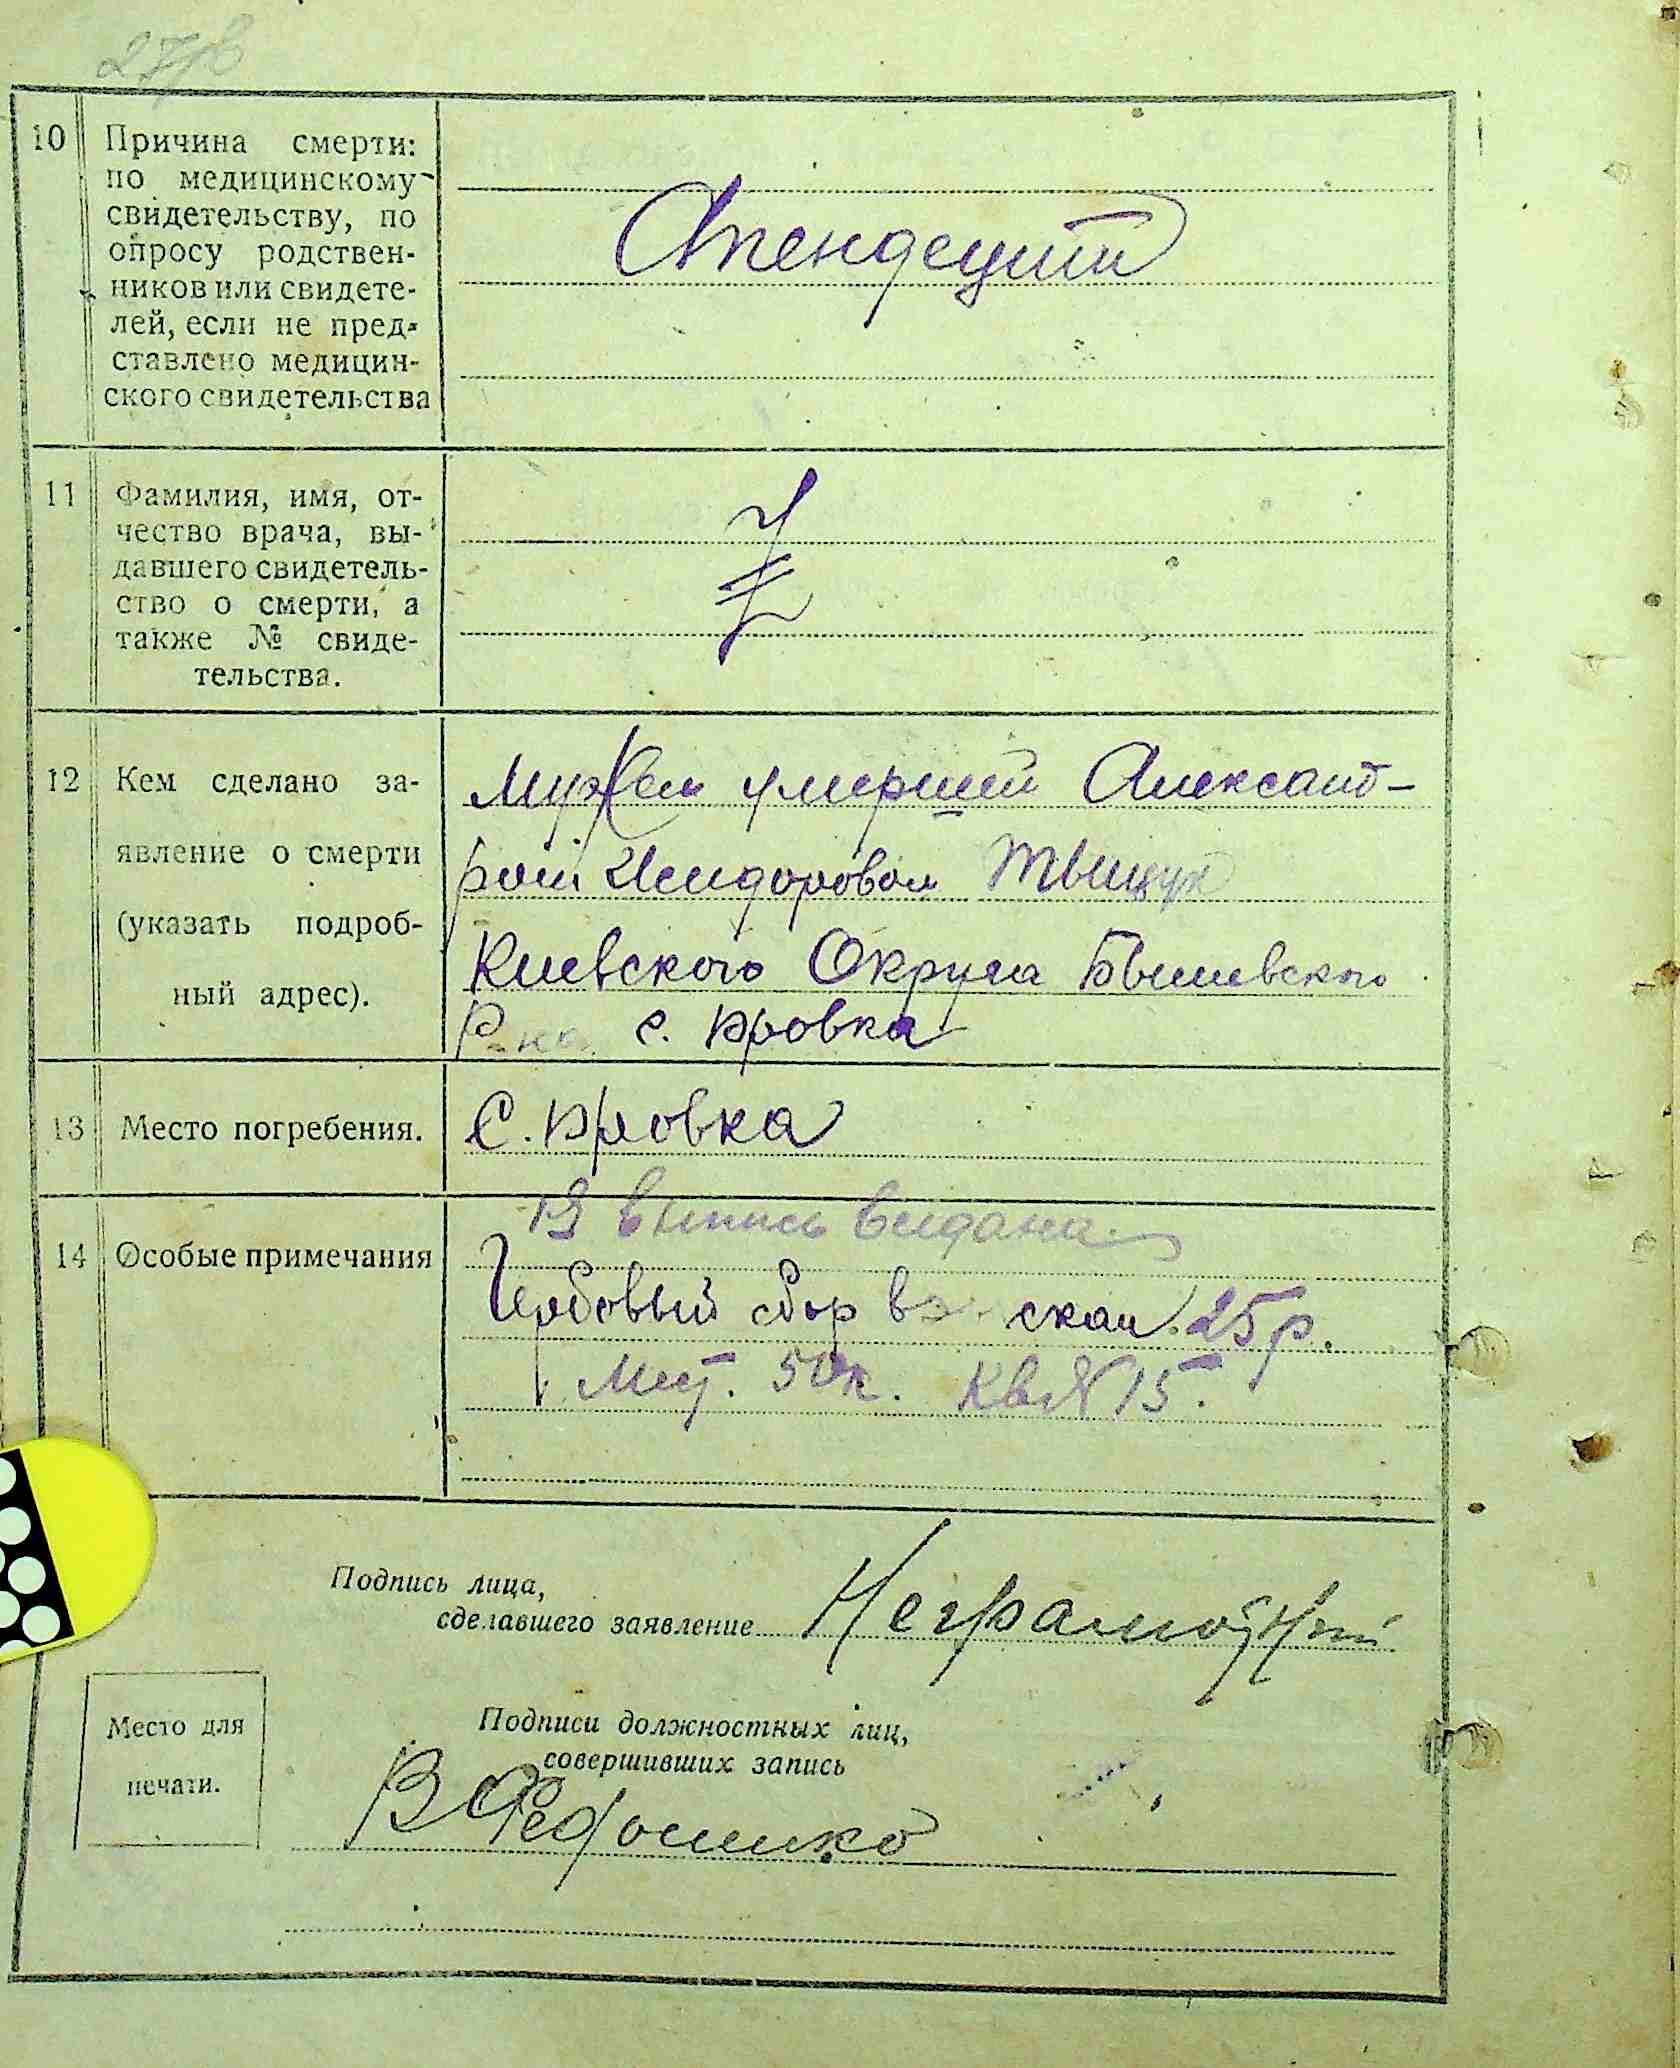 10 Причина смерти:
по медицинскому
свидетельству, по
опросу родствен-
ников или свидете-
лей, если не пред-
ставлено медицин-
ского свидетельства
Апендецит
11 Фамилия, имя, от-
чество врача, вы-
давшего свидетель-
ство о смерти, а
также № свиде-
тельства.
12 Кем сделано за-
явление о смерти
(указать подроб-
ный адрес).
Мужем умершей Александ-
ром Исидоровом Тыщук
Киевского Округа Бышевского
Р-на с. Яровка
13 Место погребения.
С. Яровка
14 Особые примечания
выпись выдана
Гербовый сбор взискан 25 р.
50 к. Кв № 15.
Подпись лица,
сделавшего заявление Неграмотный
Место для
печати.
Подписи должностных лиц,
совершивших запись